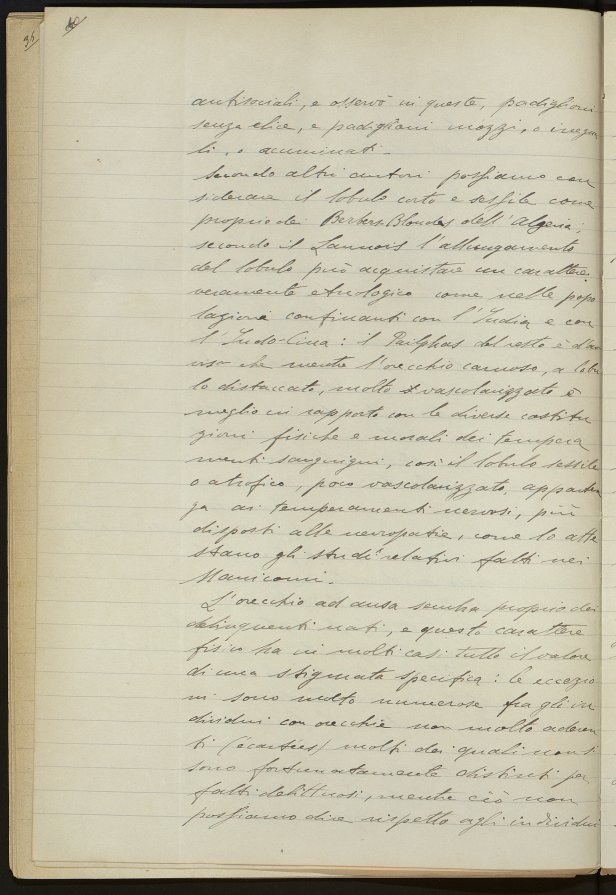 36/ 40
antisociali, e osservò in queste, padiglioni
senza elice, e padiglioni mozzi, o irrego
li, o acuminati.
Secondo altri autori possiamo con
siderare il lobulo corto e sessile come
proprio dei Berbers Blondes dell'Algeria;
secondo il Lannois l'allungamento
del lobulo può acquistare un carattere
veramente etnologico come nelle popo
lazioni confinanti con l'India e con
l'Indo-Cina: il Pailhas del resto è d'av
viso che mentre l'orecchio carnoso, a lobu
lo distaccato, molto vascolarizzato è
meglio in rapporto con le diverse costitu
zioni fisiche e morali dei tempera
menti sanguigni, così il lobulo sessile
o atrofico, poco vascolarizzato, apparten
ga ai temperamenti nervosi, più
disposti alle nevropatie, come lo atte
stano gli studi relativi fatti nei
Manicomi.
L'orecchio ad ansa sembra proprio dei
delinquenti nati, e questo carattere
fisico ha in molti casi tutto il valore
di una stigmata specifica: le eccezio
ni sono molto numerose fra gli in
dividui con orecchie non molto aderen
ti (écartées) molti dei quali non si
sono fortunatamente distinti per
fatti delittuosi, mentre ciò non
possiamo dire rispetto agli individui